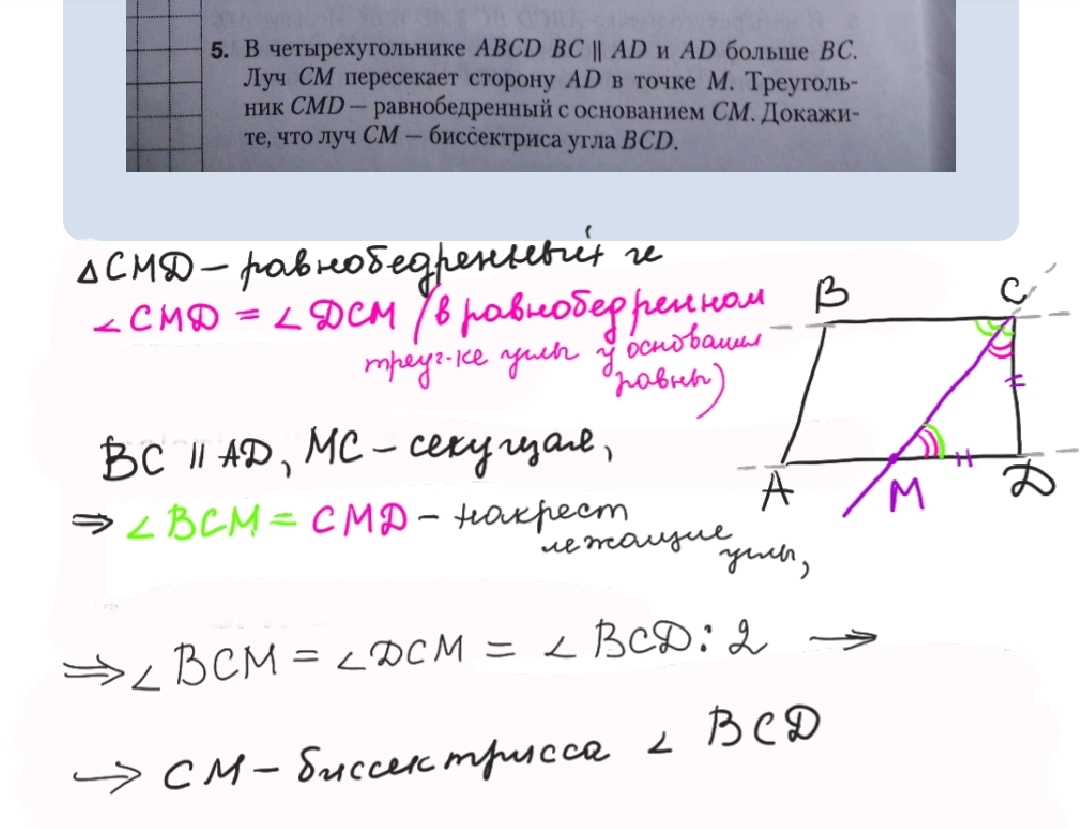 5. В четырехугольнике ABCD BC || AD и AD больше BC.
Луч CM пересекает сторону AD в точке M. Треуголь-
ник CMD — равнобедренный с основанием CM. Докажи-
те, что луч CM — биссектриса угла BCD.
△CMD – равнобедренный и
∠CMD = ∠DCM (в равнобедренном
треуг-ке углы у основания
равны)
BC || AD, MC – секущая,
⇒ ∠BCM = CMD – накрест
лежащие
углы,
⇒ ∠BCM = ∠DCM = ∠BCD : 2 →
→ CM – биссектрисса ∠ BCD
B
C
A
M
D